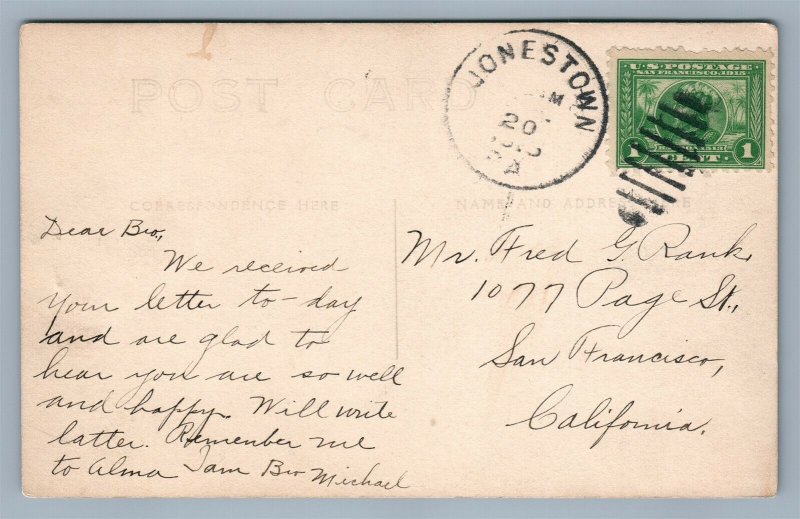 POST CARD
JONESTOWN
AM
20
U.S. POSTAGE
SAN FRANCISCO, 1915
1 CENT 1
CORRESPONDENCE HERE
NAME AND ADDRESS HERE
Dear Bro,
We received
your letter to-day
and are glad to
hear you are so well
and happy. Will write
latter. Remember me
to Alma I am Bro Michael
Mr. Fred G. Rank,
1077 Page St.,
San Francisco,
California.